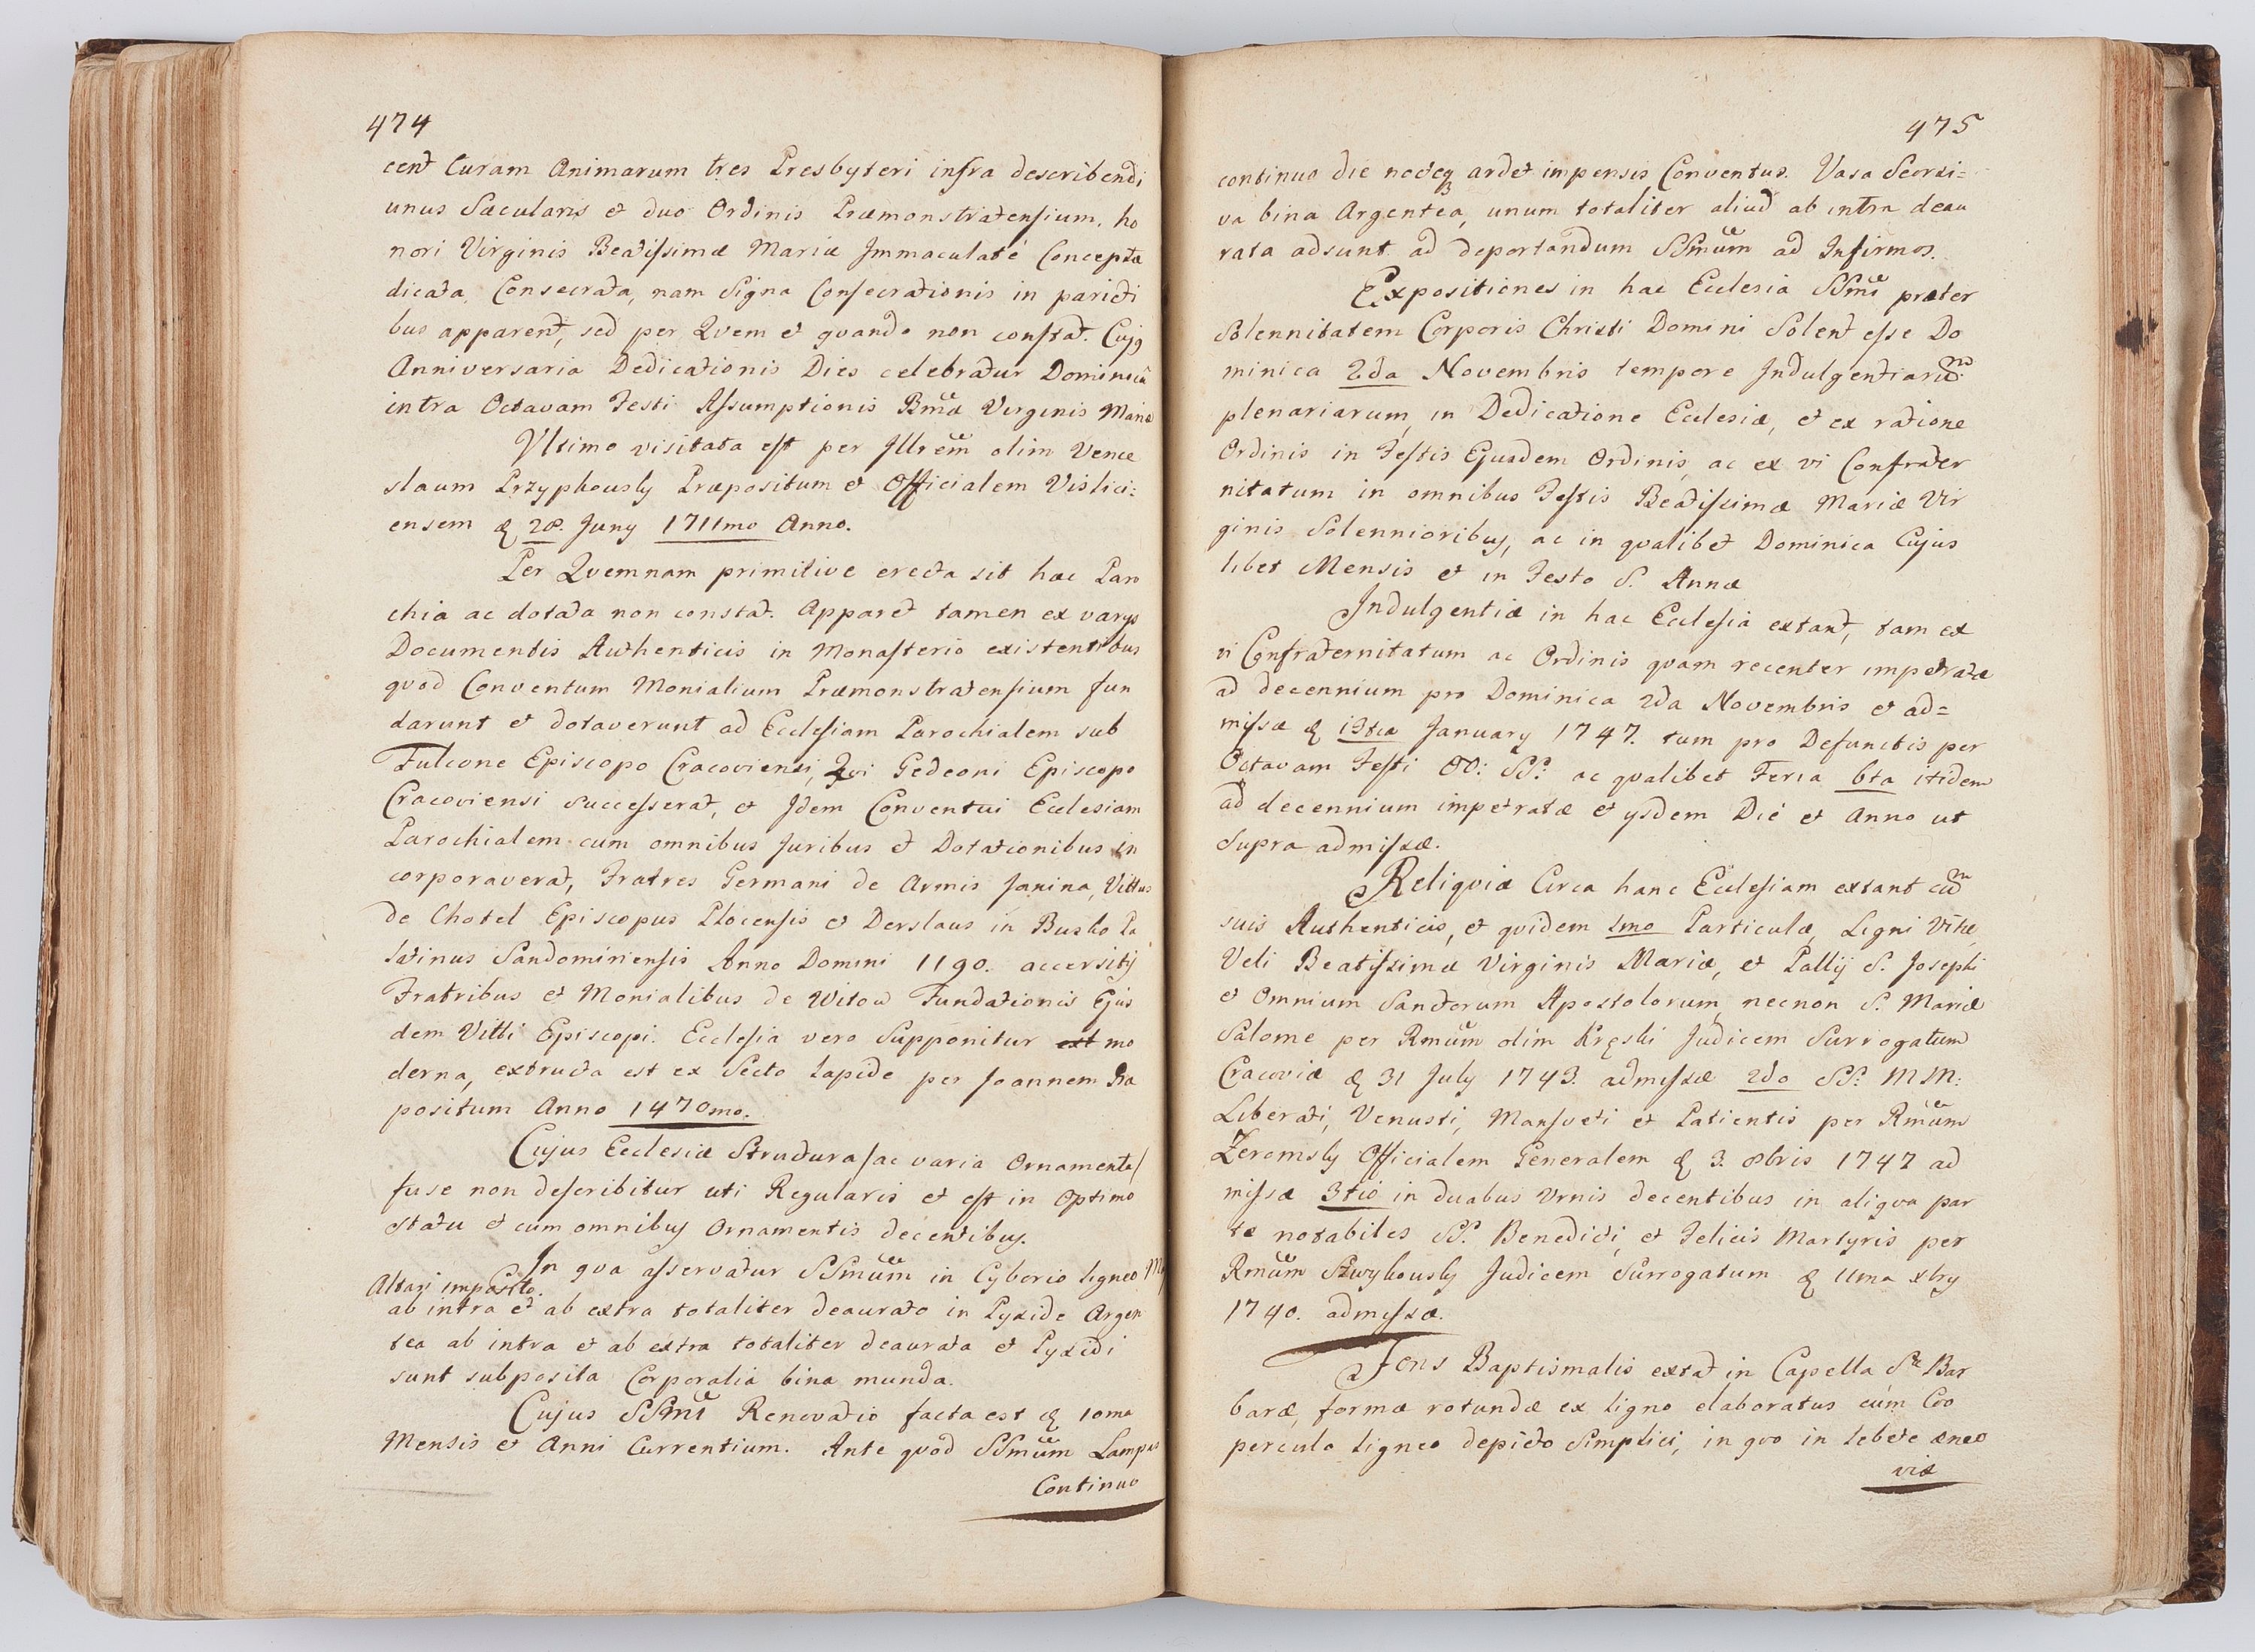 474
cent Curam Animarum tres Presbyteri infra describendi
unus Sæcularis et duo Ordinis Præmonstratensium. ho
nori Virginis Beatissimæ Mariæ Immaculaté Conceptæ
dicata, Consecrata, nam Signa Consecrationis in parieti
bus apparent, sed per Quem et quando non constat. Cujus
Anniversaria Dedicationis Dies celebratur Dominica
intra Octavam Festi Assumptionis Bmæ Virginis Mariæ
Ultimo visitata est per Illrem olim Vence
slaum Przypkowsky Præpositum et Officialem Vislici=
ensem d 28. Juny 1711mo Anno.
Per Quemnam primitive erecta sit hæc Paro
chia ac dotata non constat. Apparet tamen ex varys
Documentis Authenticis in Monasterio existentibus
quod Conventum Monialium Præmonstratensium fun
darunt et dotaverunt ad Ecclesiam Parochialem sub
Fulcone Episcopo Cracoviensi, Qui Gedeoni Episcopo
Cracoviensi successerat, et Idem Conventui Ecclesiam
Parochialem cum omnibus Juribus et Dotationibus in
corporaverat, Fratres Germani de Armis Janina, Vittus
de Chotel Episcopus Plocensis et Derslaus in Busko Pa
latinus Sandomiriensis Anno Domini 1190. accersitis
Fratribus et Monialibus de Witow Fundationis Ejus
dem Vitti Episcopi. Ecclesia vero Supponitur est mo
derna, extructa est ex Secto lapide per Joannem Præ
positum Anno 1470mo.
Cujus Ecclesiæ Structura /ac varia Ornamenta/
fuse non describitur uti Regularis et est in Optimo
statu et cum omnibus Ornamentis decentibus.
In qua asservatur SSmum in Cyborio ligneo
Altari imposito.
ab intra et ab extra totaliter deaurato in Pyxide Argen
tea ab intra et ab extra totaliter deaurata et Pyxidi
sunt subposita Corporalia bina munda.
Cujus SSmi Renovatio facta est d 10ma
Mensis et Anni Currentium. Ante quod SSmum Lampas
Continuo
475
continuo die nocteq ardet impensis Conventus. Vasa Seorsi=
va bina Argentea, unum totaliter aliud ab intra deau
rata adsunt ad deportandum SSmum ad Infirmos.
Expositiones in hac Ecclesia SSmi præter
Solennitatem Corporis Christi Domini Solent esse Do
minica 2da Novembris tempore Indulgentiarum
plenariarum, in Dedicatione Ecclesiæ, et ex ratione
Ordinis in Festis Ejusdem Ordinis, ac ex vi Confrater
nitatum in omnibus Festis Beatissimæ Mariæ Vir
ginis Solennioribus, ac in qualibet Dominica Cujus
libet Mensis et in Festo S. Annæ
Indulgentiæ in hac Ecclesia extant, tam ex
vi Confraternitatum ac Ordinis quam recenter impetratæ
ad decennium pro Dominica 2da Novembris et ad=
missæ d 13tia January 1747. tum pro Defunctis per
Octavam Festi OO: SS: ac qualibet Feria 6ta itidem
ad decennium impetratæ et ysdem Die et Anno ut
Supra admissæ.
Reliquiæ Circa hanc Ecclesiam extant cum
suis Authenticis, et quidem 1mo Particulæ, Ligni Vitæ,
Veli Beatissimæ Virginis Mariæ, et Pallij S. Josephi
et Omnium Sanctorum Apostolorum, necnon S. Mariæ
Salome per Rmum olim Kręski Judicem Surrogatum
Cracoviæ d 31 July 1743. admissæ 2do SS: MM:
Liberati, Venusti, Mansveti et Patientis per Rmum
Zeromsky Officialem Generalem d 3. 8bris 1747 ad
missæ 3tio in duabus Urnis decentibus in aliqua par
te notabiles SS. Benedicti, et Felicis Martyris per
Rmum Szwykowsky Judicem Surrogatum d 11ma xbry
1740. admissæ.
Fons Baptismalis extat in Capella Stæ Bar
baræ, formæ rotundæ ex ligno elaboratus cum Coo
perculo ligneo depicto Simplici, in quo in lebete æneo
viæ